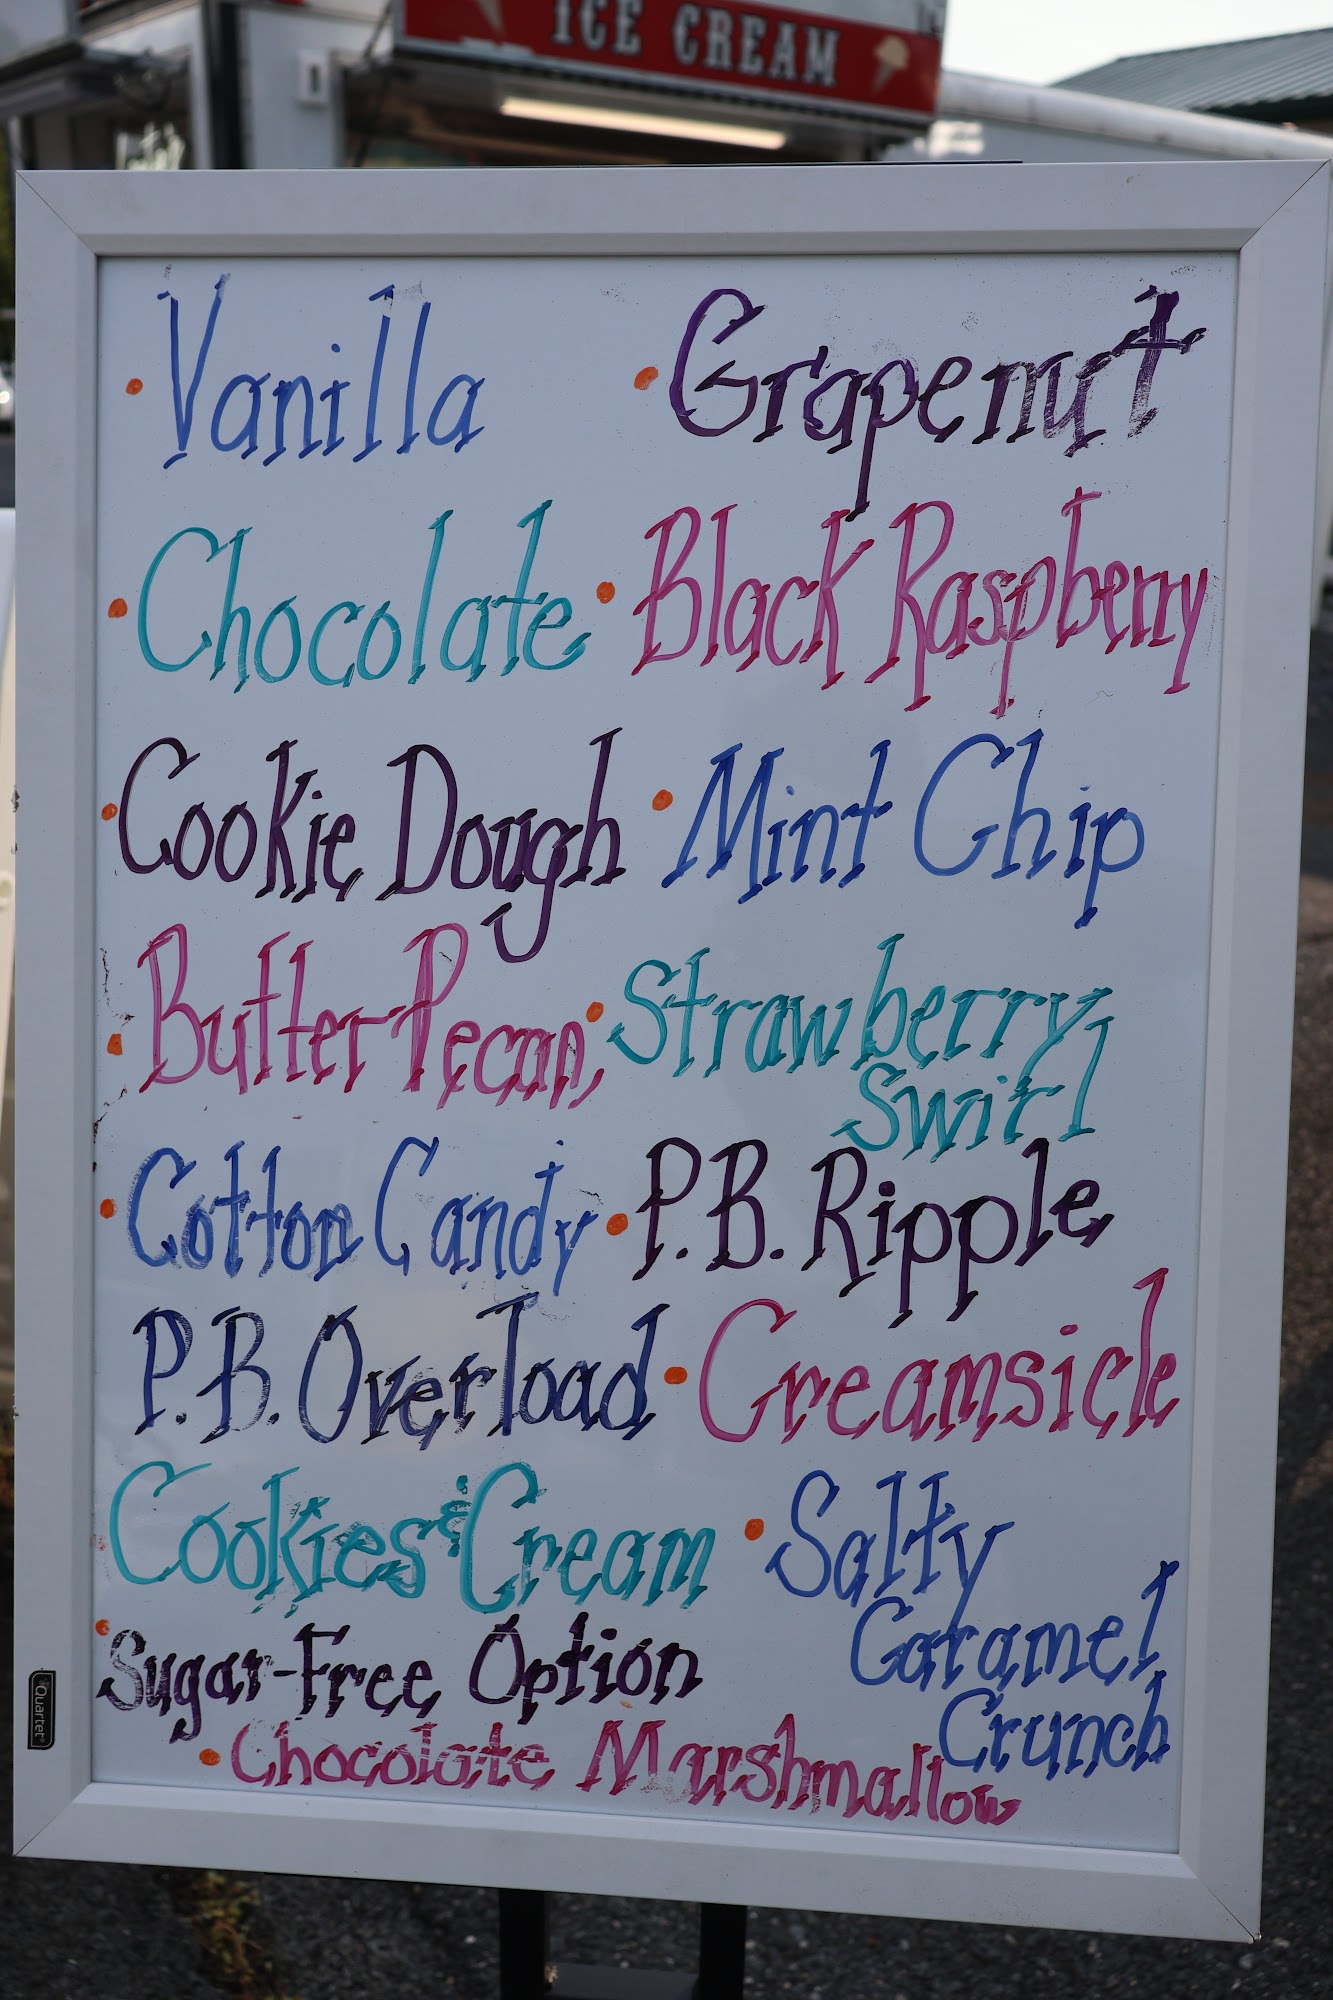 ICE CREAM
• Vanilla
• Grapenut
• Chocolate
• Black Raspberry
• Cookie Dough
• Mint Chip
• Butter Pecan
• Strawberry
Swirl
• Cotton Candy
• P.B. Ripple
P.B. Overload
• Creamsicle
Cookies & Cream
• Salty
Caramel
Crunch
• Sugar-Free Option
• Chocolate Marshmallow
Quartet